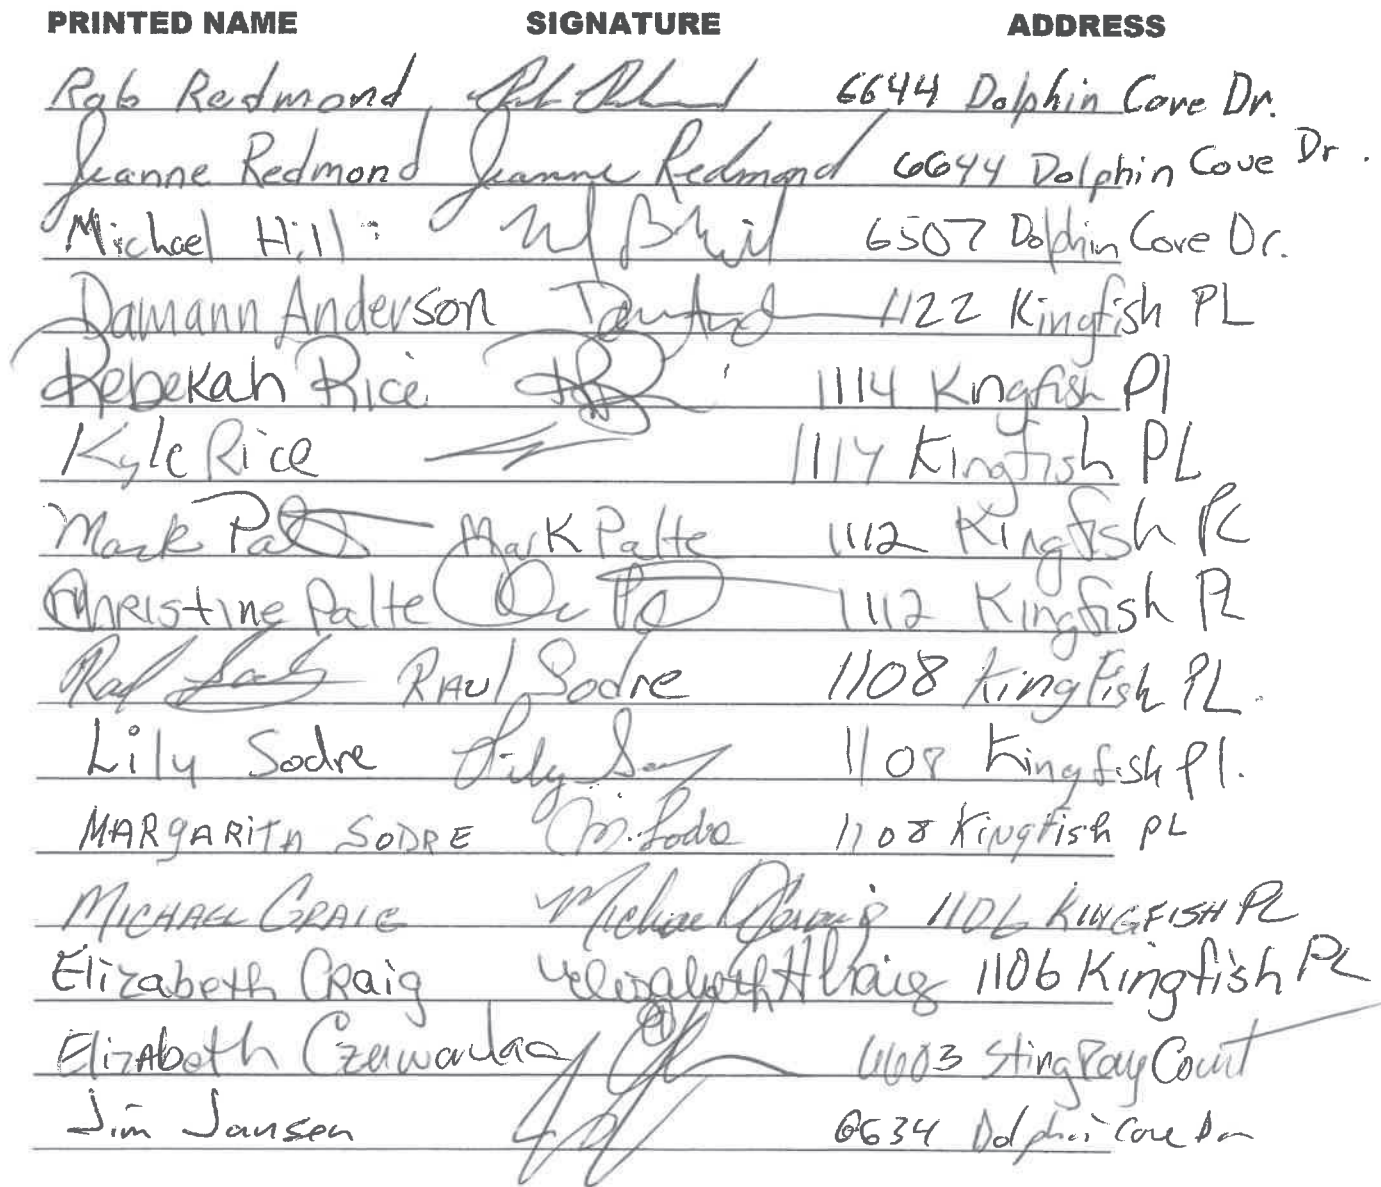 PRINTED NAME SIGNATURE ADDRESS
Rob Redmond 6644 Dolphin Cove Dr.
Jeanne Redmond Jeanne Redmond 6644 Dolphin Cove Dr.
Michael Hill 6507 Dolphin Cove Dr.
Damann Anderson 1122 Kingfish PL
Rebekah Rice 1114 Kingfish Pl
Kyle Rice 1114 Kingfish PL
Mark Mark Palte 1112 Kingfish PL
Christine Palte 1112 Kingfish PL
RAUL Sodre 1108 KingFish PL.
Lily Sodre Lily 1108 Kingfish Pl.
MARgARITA SODRE M. Sodre 1108 Kingfish PL
MICHAEL CRAIG 1106 KINGFISH PL
Elizabeth CRaig Elizabeth H Craig 1106 Kingfish PL
ElizAbeth 6603 StingRay Court
Jim Jansen 6634 Dolphin Cove